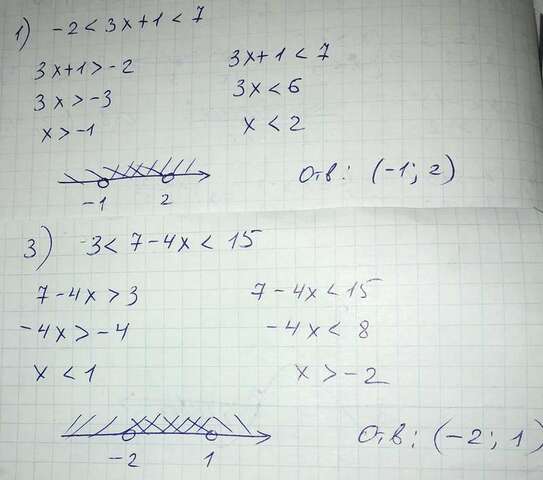 1) -2 < 3x+1 < 7
3x+1 > -2
3x > -3
x > -1
3x+1 < 7
3x < 6
x < 2
-1 2
Отв: (-1; 2)
3) 3 < 7-4x < 15
7-4x > 3
-4x > -4
x < 1
7-4x < 15
-4x < 8
x > -2
-2 1
Отв: (-2; 1)